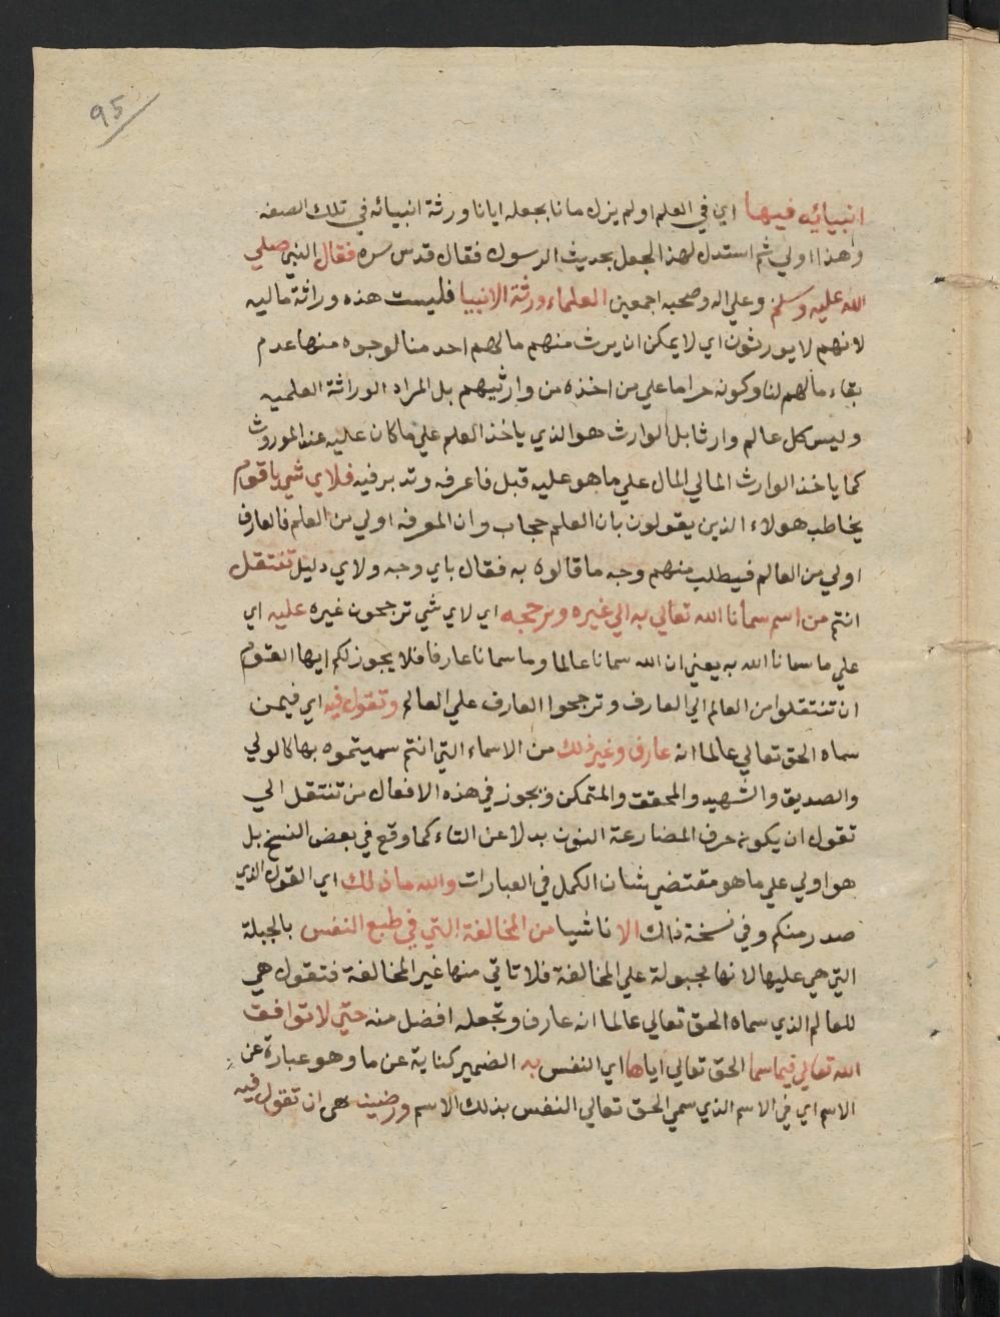 95
انبيائه فيها اي في العلم او لم يزل مانا بجعله ايانا ورثة انبيائه في تلك الصفه
وهذا اولي ثم استدل لهذا الجعل بحديث الرسول فقال قدس سره فقال النبي صلي
الله عليه وسلم وعلي اله وصحبه اجمعين العلماء ورثة الانبيا فليست هذه وراثة ماليه
لانهم لا يورثون اي لا يمكن ان يرث منهم مالهم احد منا لوجوه منها عدم
بقاء مالهم لنا وكونه حراما علي من اخذه من وارثيهم بل المراد الوراثة العلميه
وليس كل عالم وارثا بل الوارث هو الذي ياخذ العلم علي ما كان عليه عند الموروث
كما ياخذ الوارث المالي المال علي ما هو عليه قبل فاعرفه وتدبر فيه فلاي شي يا قوم
يخاطب هولاء الذين يقولون بان العلم حجاب وان المعرفه اولي من العلم فالعارف
اولي من العالم فيطلب منهم وجه ما قالوه به فقال باي وجه ولاي دليل تنتقل
انتم من اسم سمانا الله تعالي به الي غيره وترجحه اي لاي شي ترجحون غيره عليه اي
علي ما سمانا الله به يعني ان الله سمانا عالما وما سمانا عارفا فلا يجوز لكم ايها القوم
ان تنتقلوا من العالم الي العارف وترجحوا العارف علي العالم وتقول فيه اي فيمن
سماه الحق تعالي عالما انه عارف وغير ذلك من الاسماء التي انتم سميتموه بها كالولي
والصديق والشهيد والمحقق والمتمكن ويجوز في هذه الافعال من تنتقل الي
تقول ان يكون حرف المضارعة النون بدلا عن التاء كما وقع في بعض النسخ بل
هو اولي علي ما هو مقتضي شان الكمل في العبارات والله ما ذلك اي القول الذي
صدر منكم وفي نسخة ذاك الا ناشيا من المخالفة التي في طبع النفس بالجبلة
التي هي عليها لانها مجبولة علي المخالفة فلا تاتي منها غير المخالفة فتقول هي
للعالم الذي سماه الحق تعالي عالما انه عارف وتجعله افضل منه حتي لا توافق
الله تعالي فيما سما الحق تعالي اياها اي النفس به الضمير كناية عن ما وهو عبارة عن
الاسم اي في الاسم الذي سمي الحق تعالي النفس بذلك الاسم ورضيت هي ان تقول فيه